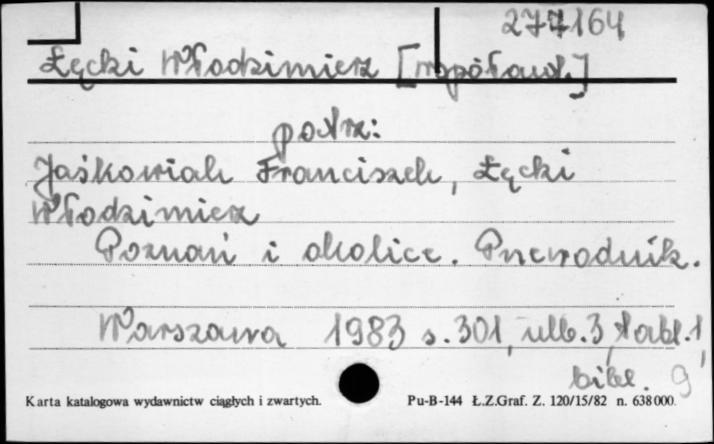 277164
Łęcki Włodzimierz [współaut.]
patrz:
Jaśkowiak Franciszek, Łęcki
Włodzimierz
Poznań i okolice. Przewodnik.
Warszawa 1983 s. 301, ulb. 3, tabl. 1,
bibl. 9
Karta katalogowa wydawnictw ciągłych i zwartych. Pu-B-144 Ł.Z.Graf. Z. 120/15/82 n. 638000.